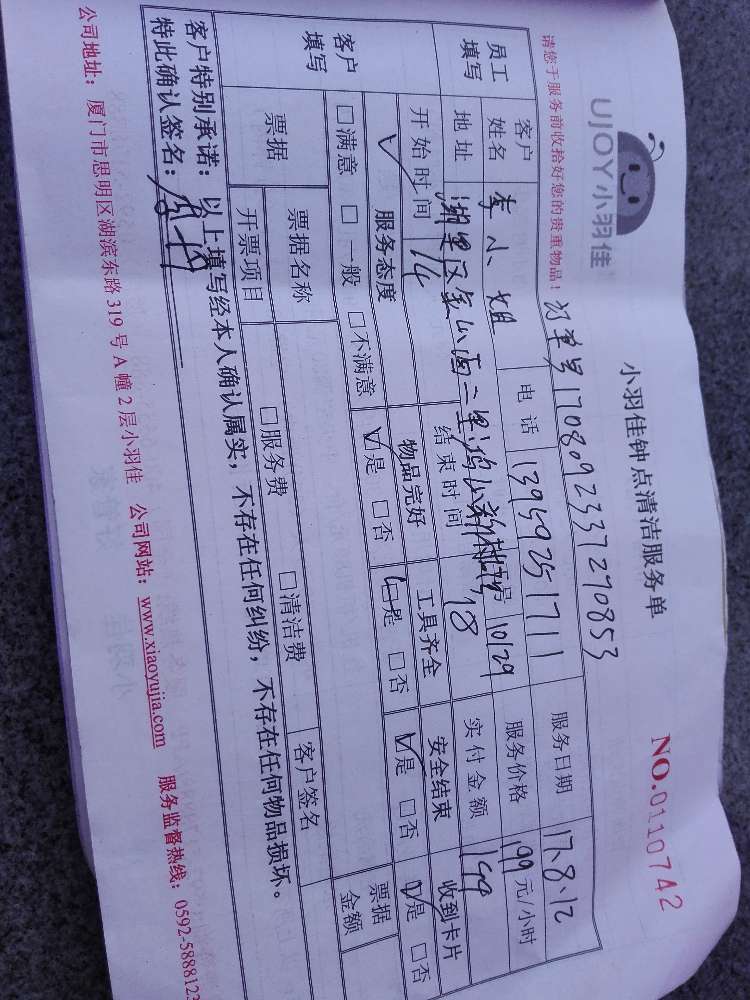 UJOY小羽佳
小羽佳钟点清洁服务单
NO.0110742
请您于服务前收拾好您的贵重物品！
订单号1708092337290853
员工填写 客户姓名 李小姐 电话 13959251711 服务日期 17.8.12
地址 湖里区金山西二里 10/29 服务价格 199元/小时
开始时间 14 结束时间 18 实付金额 199
客户填写 服务态度 物品完好 工具齐全 安全结束 收到卡片
□满意 □一般 □不满意 □是 □否 □是 □否 □是 □否 □是 □否
票据 票据名称 客户签名 票据金额
开票项目 □服务费 □清洁费
客户特别承诺：以上填写经本人确认属实，不存在任何纠纷，不存在任何物品损坏。
特此确认签名：
公司地址：厦门市思明区湖滨东路319号A幢2层小羽佳 公司网站：www.xiaoyujia.com 服务监督热线：0592-5888123